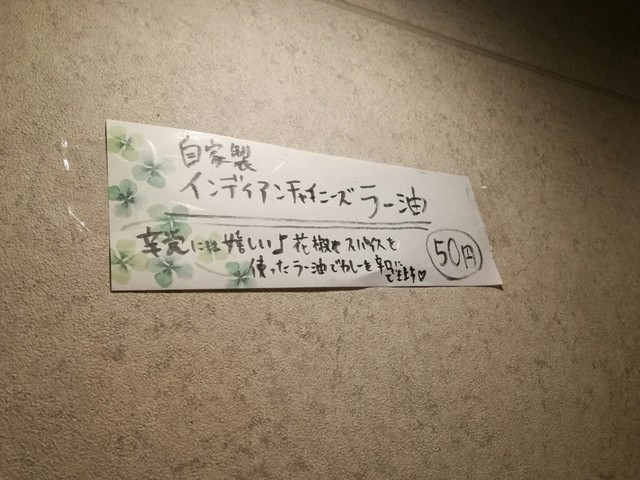 自家製
インディアンチャイニーズ ラー油
辛党には嬉しい♪ 花椒や スパイスを
使ったラー油でカレーを辛口に
できます♡
50円